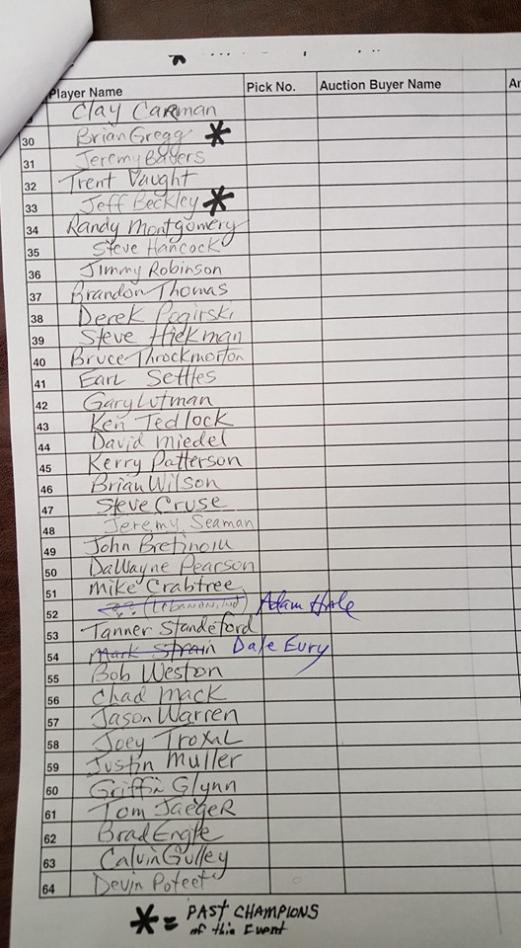 Player Name Pick No. Auction Buyer Name
Clay Carman
30 Brian Gregg *
31 Jeremy Bayers
32 Trent Vaught
33 Jeff Beckley *
34 Randy Montgomery
35 Steve Hancock
36 Jimmy Robinson
37 Brandon Thomas
38 Derek Pogirski
39 Steve Hickman
40 Bruce Throckmorton
41 Earl Settles
42 Gary Lutman
43 Ken Tedlock
44 David Miedel
45 Kerry Patterson
46 Brian Wilson
47 Steve Cruse
48 Jeremy Seaman
49 John
50 DaWayne Pearson
51 Mike Crabtree
52 ?? (Lebanon, Ind) Adam Hole
53 Tanner Standeford
54 Mark Strain Dale Eury
55 Bob Weston
56 Chad Mack
57 Jason Warren
58 Joey Troxal
59 Justin Muller
60 Griffin Glynn
61 Tom Jaeger
62 Brad Engle
63 Calvin Gulley
64 Devin Poteet
* = PAST CHAMPIONS
of this Event